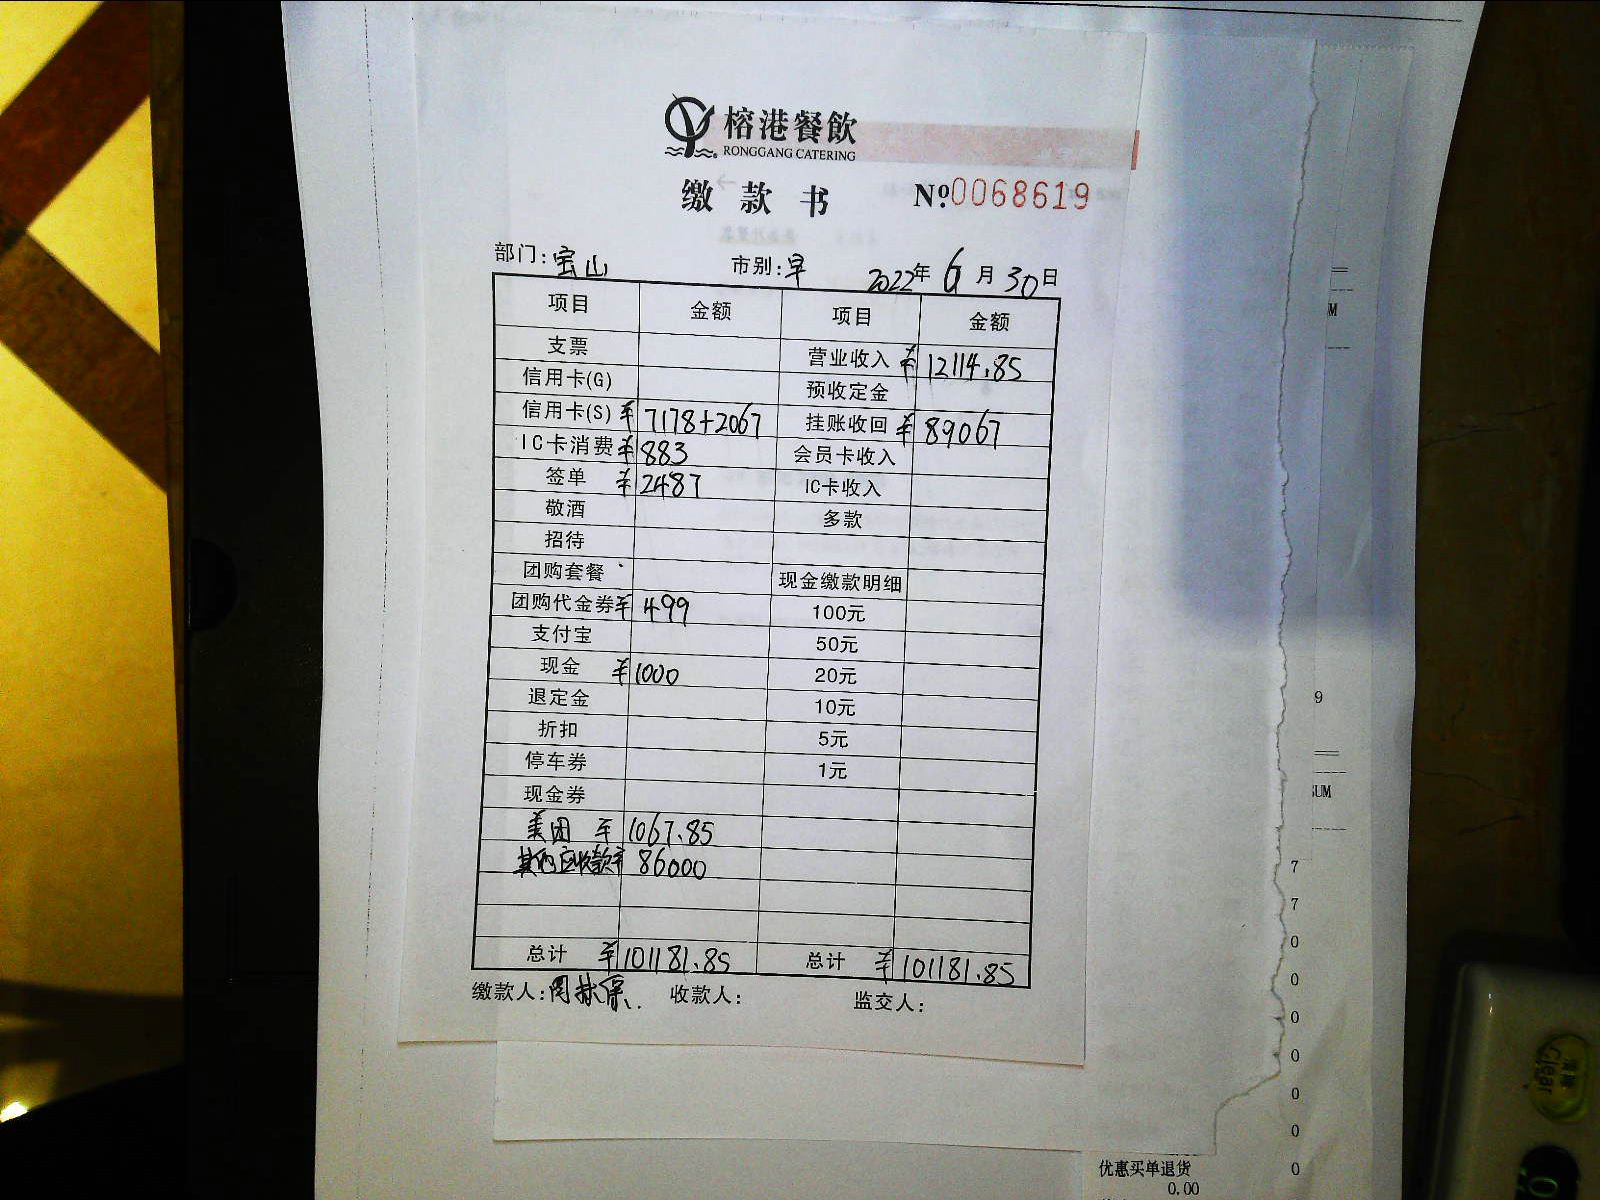 榕港餐飲
RONGGANG CATERING
缴款书 №0068619
部门:宝山 市别:早 2022年6月30日
项目 金额 项目 金额
支票 营业收入 ¥12114.85
信用卡(G) 预收定金
信用卡(S) ¥7178+2067 挂账收回 ¥89067
IC卡消费 ¥883 会员卡收入
签单 ¥2487 IC卡收入
敬酒 多款
招待
团购套餐 现金缴款明细
团购代金券 ¥499 100元
支付宝 50元
现金 ¥1000 20元
退定金 10元
折扣 5元
停车券 1元
现金券
美团 ¥1067.85
其他应收款 ¥86000
总计 ¥101181.85 总计 ¥101181.85
缴款人: 收款人: 监交人:
M
9
SUM
7
7
0
0
0
0
0
0
0
优惠买单退货
0.00
清除
Clear